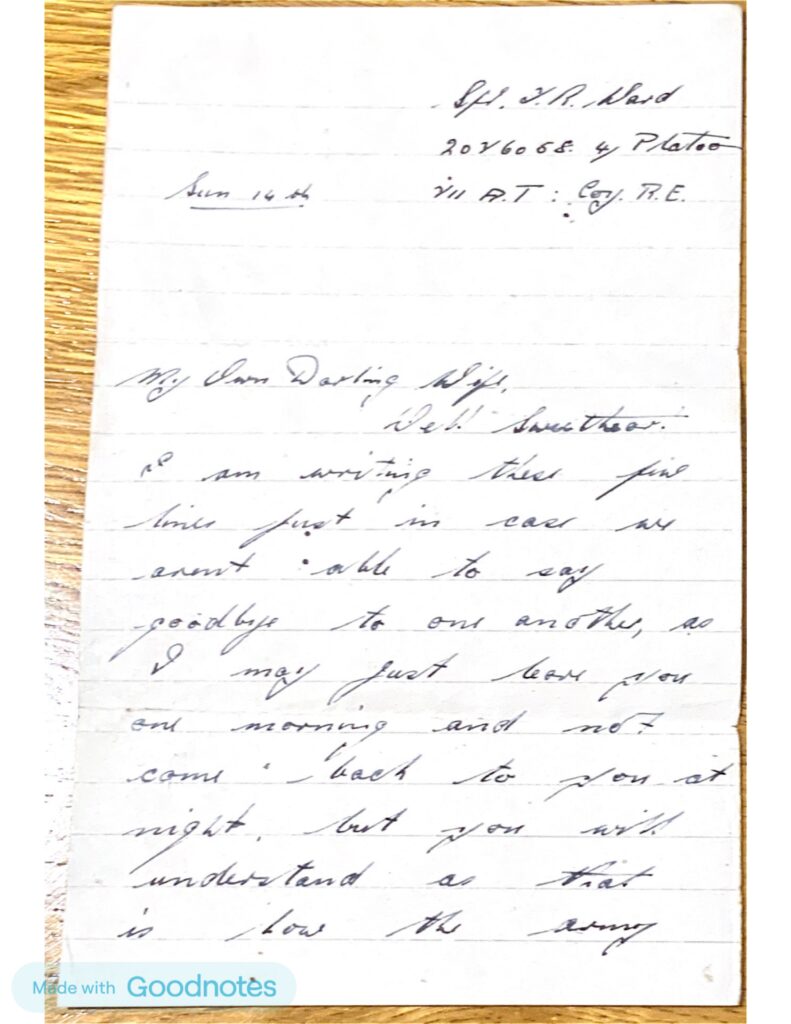 Spr. T. R. Ward
2026068. 4 Platoo
Sun 14th
VII A.T: Coy. R.E.
My Own Darling Wife,
Well Sweetheart.
I am writing these few
lines just in case we
arent able to say
goodbye to one another, as
I may just leave you
one morning and not
come back to you at
night, but you will
understand as that
is how the army
Made with Goodnotes